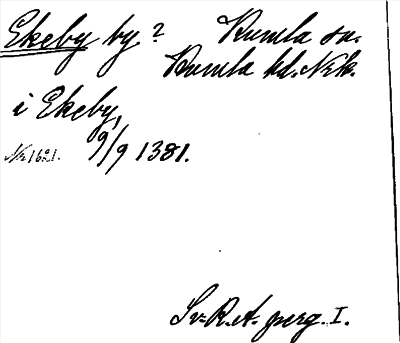 Ekeby by? Kumla sn.
Kumla hd. Nrk.
i Ekeby,
Nr 1621. 9/9 1381.
Sv. R. A. perg. I.